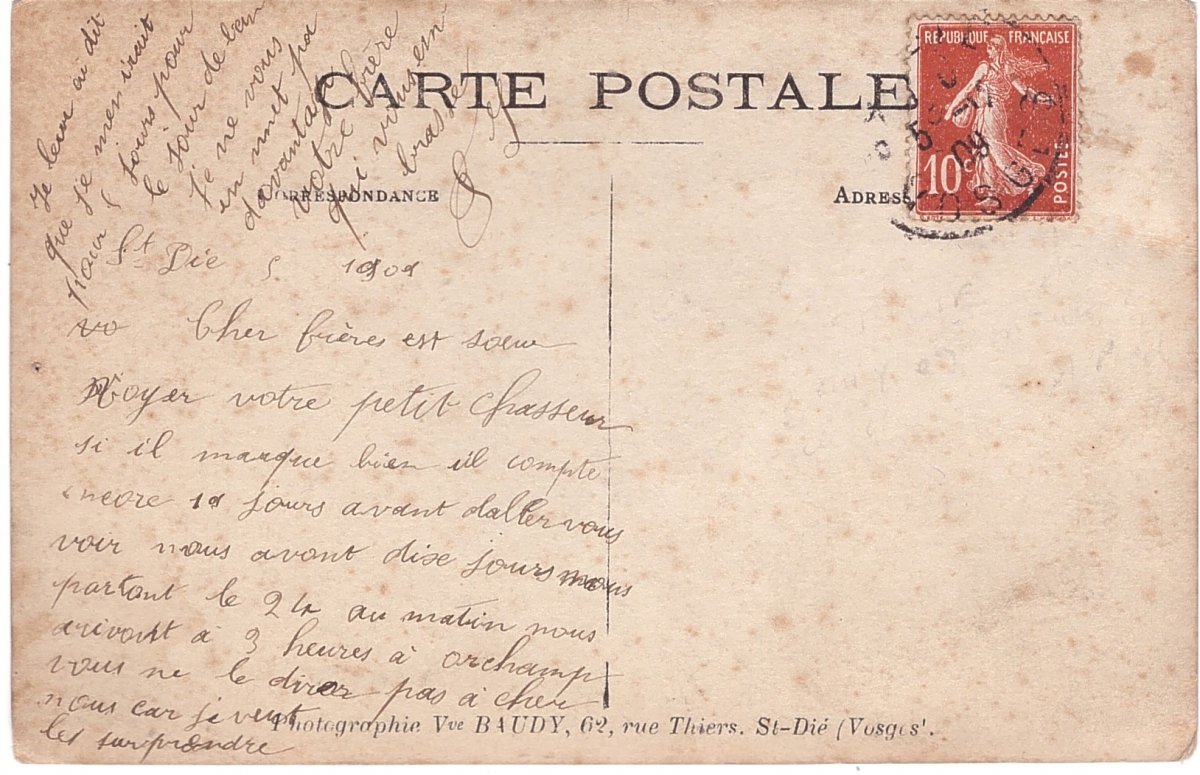 CARTE POSTALE
CORRESPONDANCE
ADRESSE
REPUBLIQUE FRANÇAISE
10 c
POSTES
St Die 5 1909
vo Cher frères est soeur
Voyer votre petit Chasseur
si il marque bien il compte
encore 19 jours avant daller vous
voir nous avont dixe jours nous
partont le 24 au matin nous
arivont à 3 heures à orchamp
vous ne le direr pas à cher
nous car je veut
les surprendre
Je leur ai dit
que je menirait
pour 5 jours pour
le jour de lan
je ne vous
en met pa
davantage
votre frère
qui vous em
brasse
Photographie Vve BAUDY, 62, rue Thiers. St-Dié (Vosges).